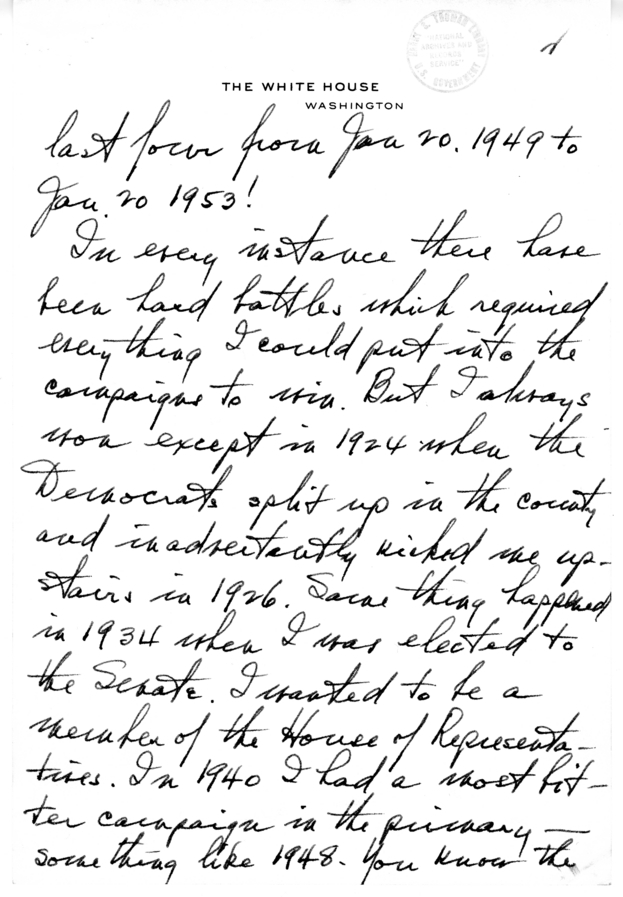 HARRY S. TRUMAN LIBRARY
NATIONAL
ARCHIVES AND
RECORDS
SERVICE
U.S. GOVERNMENT
THE WHITE HOUSE
WASHINGTON
last four from Jan 20. 1949 to
Jan. 20 1953!
In every instance there have
been hard battles which required
everything I could put into the
campaigns to win. But I always
won except in 1924 when the
Democrats split up in the county
and inadvertantly kicked me up-
stairs in 1926. Same thing happened
in 1934 when I was elected to
the Senate. I wanted to be a
member of the House of Representa-
tives. In 1940 I had a most bit-
ter campaign in the primary—
something like 1948. You know the